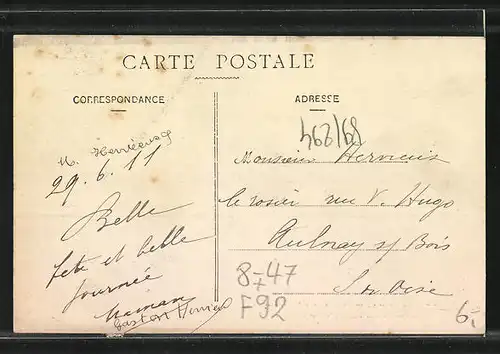 CARTE POSTALE
CORRESPONDANCE
ADRESSE
29.6.11
Belle
fete et belle
journée
Maman
Gaston
468/69
Monsieur
le rosier rue V. Hugo
Aulnay s/ Bois
S et Oise
8-47
F92
6,-